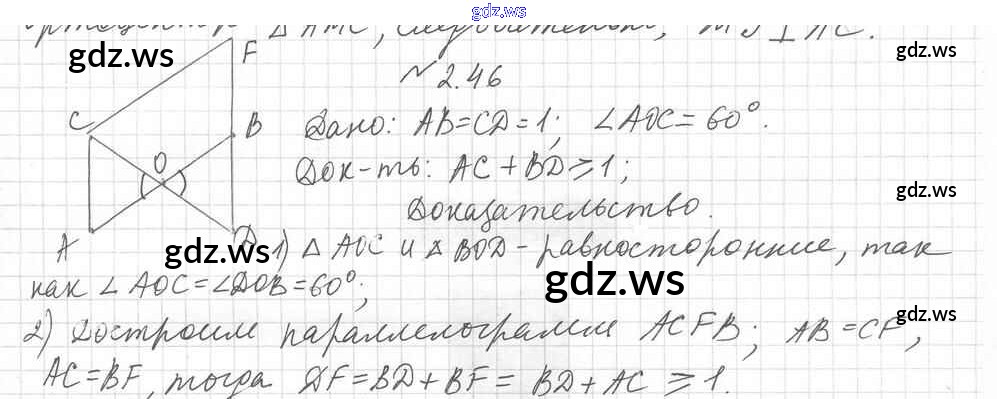 gdz.ws
△ AMC, следовательно, MS ⊥ AC.
gdz.ws
gdz.ws
F
№ 2.46
C
B
Дано: AB=CD=1; ∠AOC=60°.
O
Док-ть: AC+BD⩾1;
gdz.ws
Доказательство.
A
D
gdz.ws
1) △ AOC и △ BOD - равносторонние, так
как ∠AOC=∠DOB=60°;
gdz.ws
gdz.ws
2) Достроим параллелограмм ACFB; AB=CF,
AC=BF, тогда DF=BD+BF= BD+AC ⩾1.